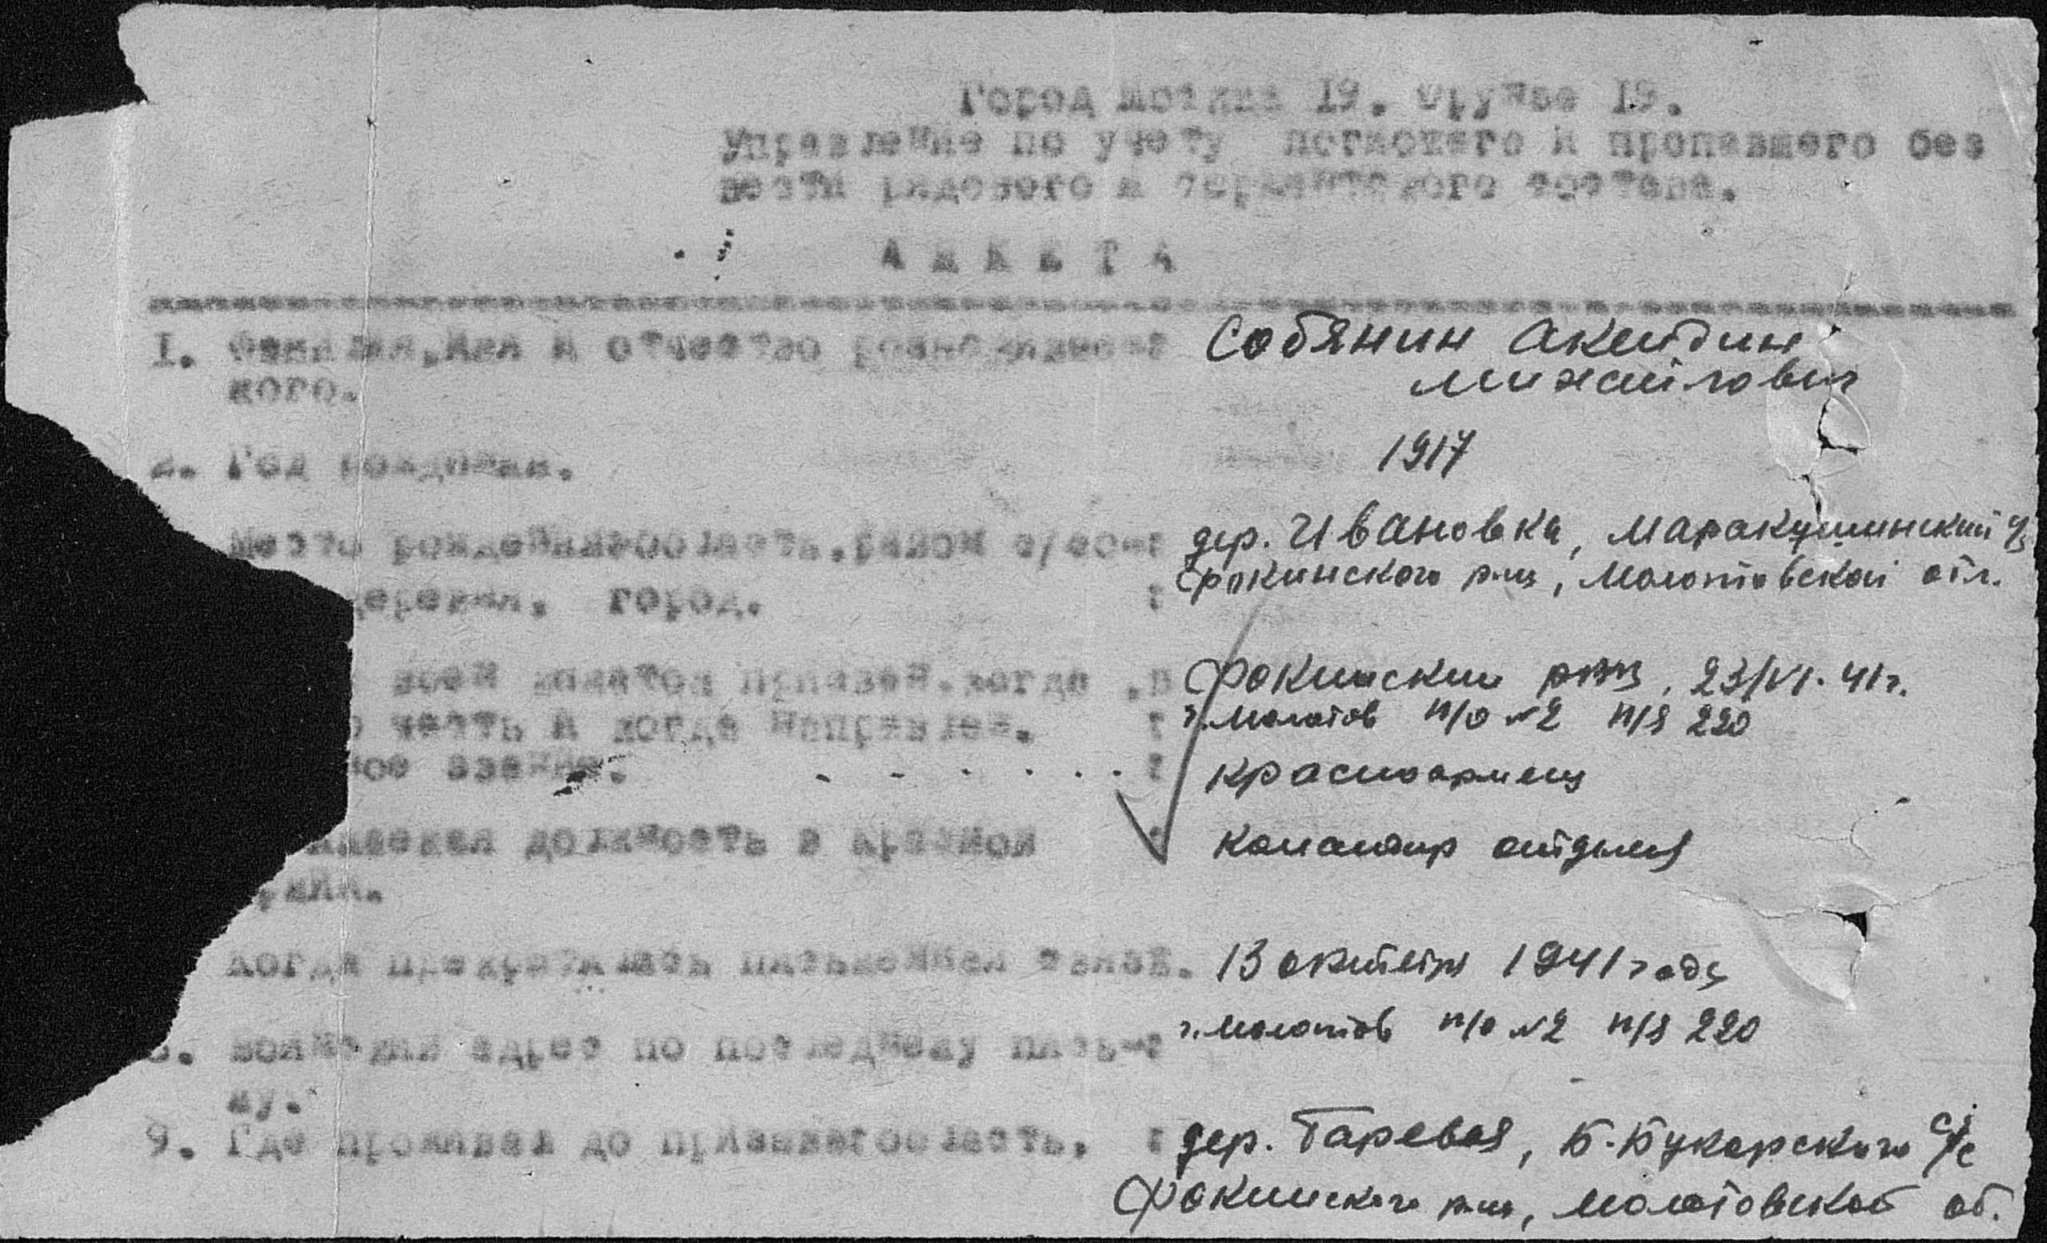 Город Москва 19. Фрунзе 19.
Управление по учету погибшего и пропавшего без
вести рядового и сержантского состава.
А Н К Е Т А
1. Фамилия, имя и отчество разыскиваемо-: Собянин Акиндин
кого. Михайлович
2. Год рождения. 1917
Место рождения: область, район с/со-: дер. Ивановка, Маракушинский с/с
деревня, город. : Фокинского р-на, Молотовской обл.
всей когда, в Фокинский РВК, 23/VI-41г.
часть и когда направлен. : г. Молотов п/о №2 п/я 220
ное звание. . . . . . . : красноармеец
должность в Красной : командир отделения
рмии.
Когда прекратилась письменная связь. 13 октября 1941 года
8. Воинский адрес по последнему пись-: г. Молотов п/о №2 п/я 220
му.
9. Где проживал до призыва: область, : дер. Таревая, Б-Букорского с/с
Фокинского р-на, Молотовской об.